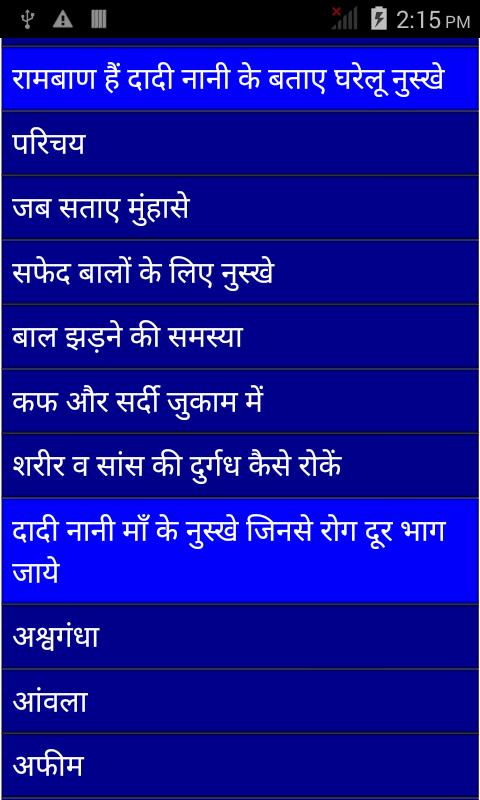 2:15 PM
रामबाण हैं दादी नानी के बताए घरेलू नुस्खे
परिचय
जब सताए मुंहासे
सफेद बालों के लिए नुस्खे
बाल झड़ने की समस्या
कफ और सर्दी जुकाम में
शरीर व सांस की दुर्गध कैसे रोकें
दादी नानी माँ के नुस्खे जिनसे रोग दूर भाग
जाये
अश्वगंधा
आंवला
अफीम